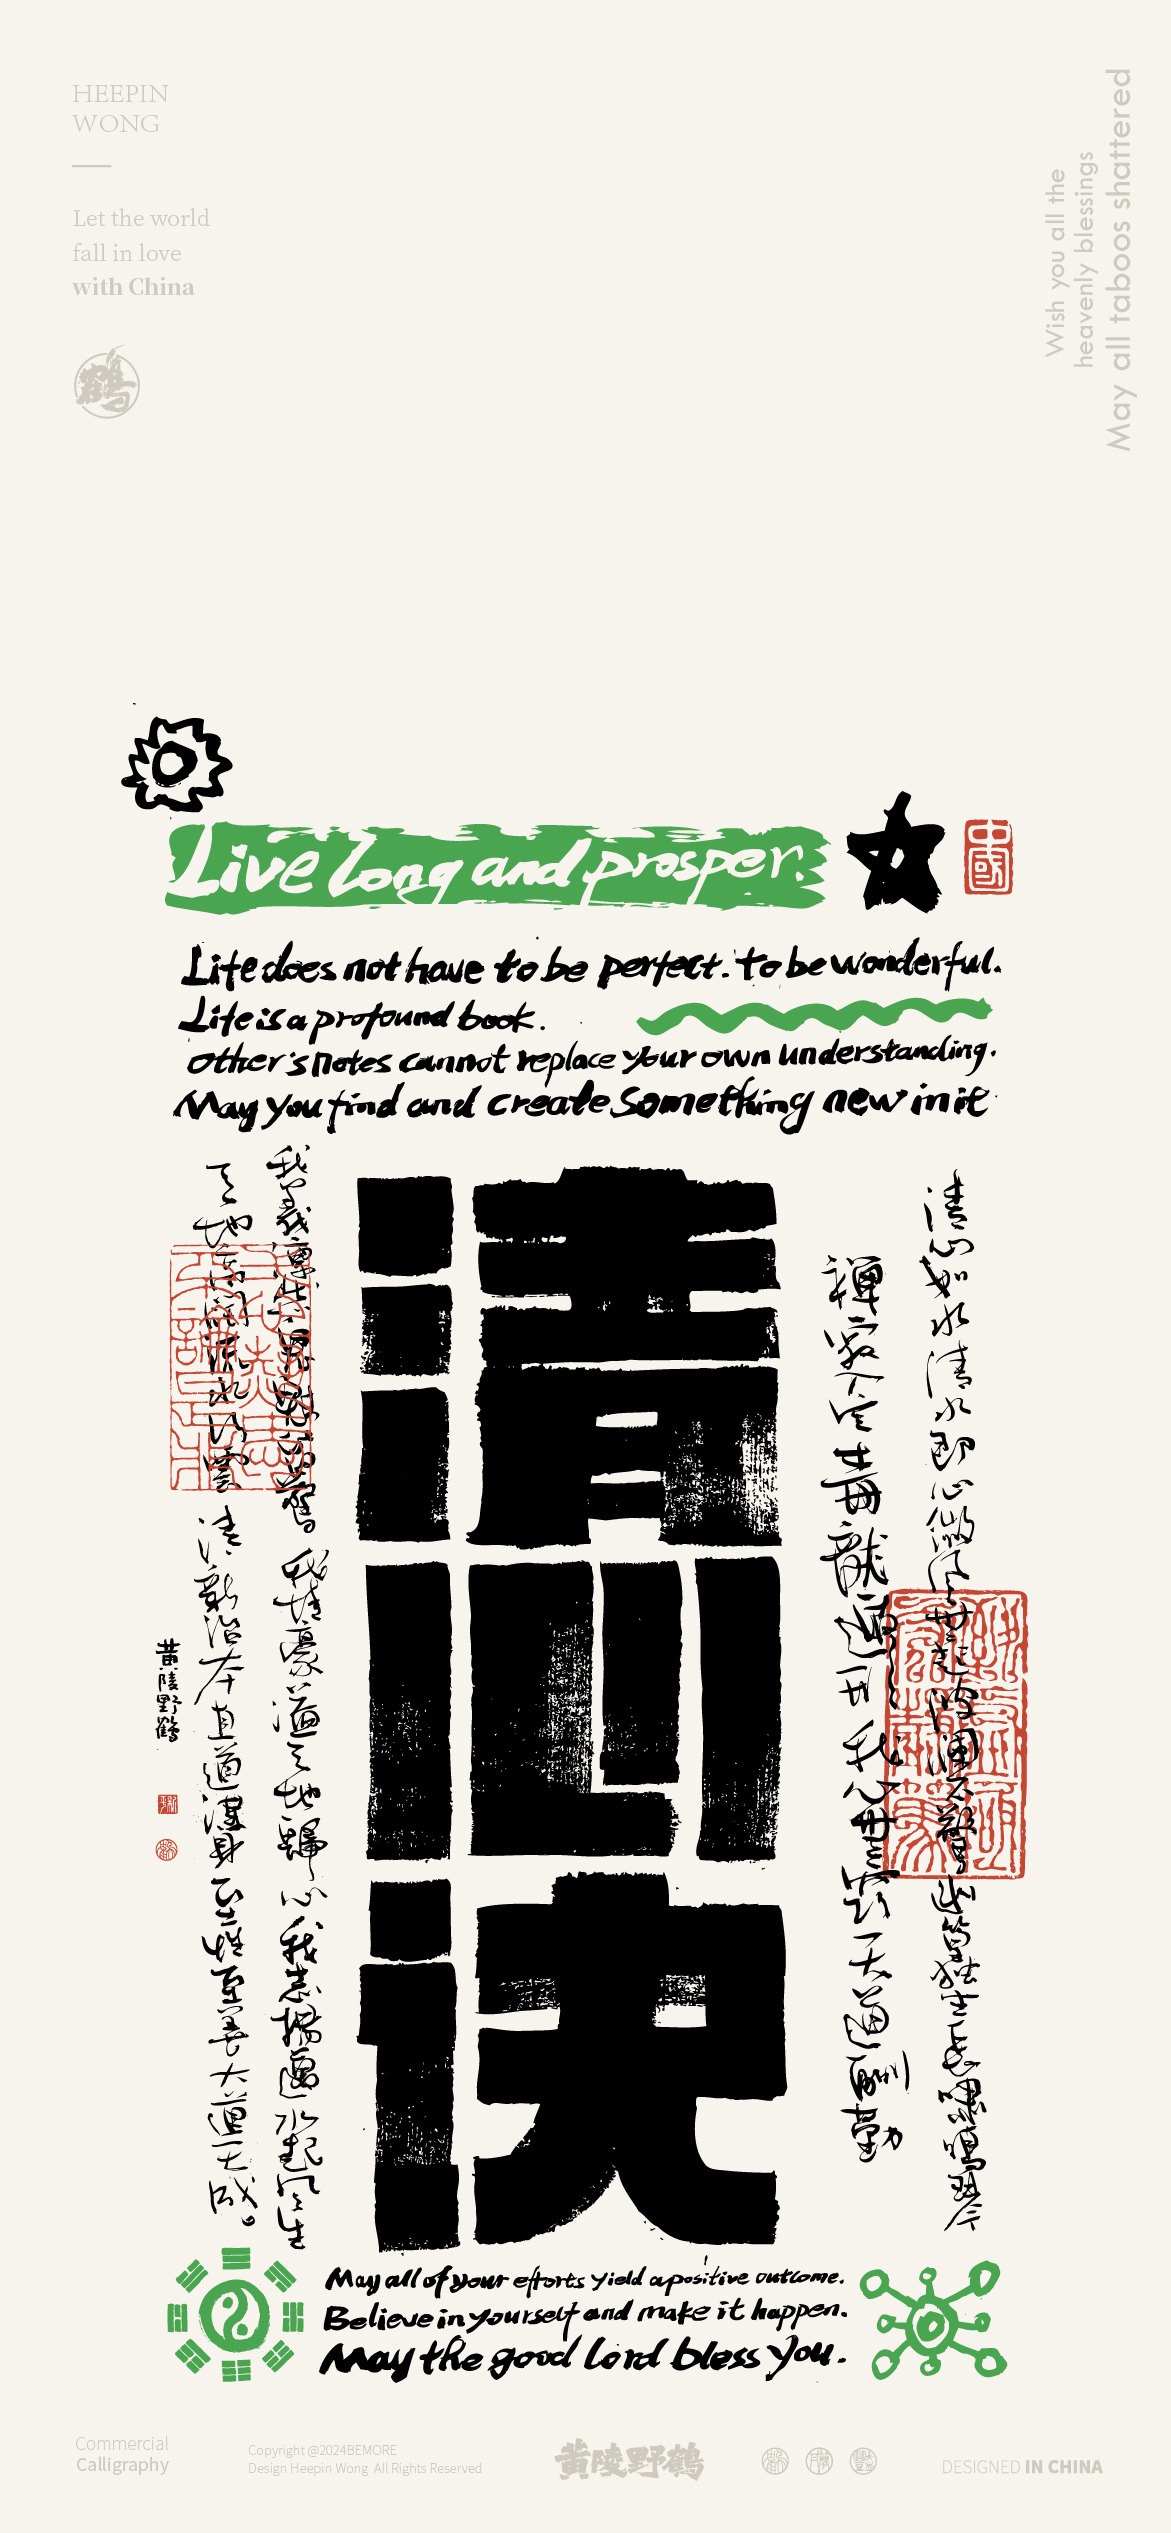 HEEPIN
WONG
Let the world
fall in love
with China
鶴
Wish you all the
heavenly blessings
May all taboos shattered
Live long and prosper.
中國
Life does not have to be perfect. To be wonderful.
Life is a profound book.
Other's notes cannot replace your own understanding.
May you find and create something new in it
清心訣
清心如水清水即心微風無起波瀾不驚幽篁獨坐長嘯鳴琴
禪寂入定毒龍遁形我心無竅天道酬勤
我義凜然鬼魅皆驚 我情豪溢天地歸心我志揚邁水起風生
天地流水行雲 清新治本直道謀身至性至善大道天成。
黄陵野鶴
May all of your efforts yield a positive outcome.
Believe in yourself and make it happen.
May the good lord bless you.
Commercial
Calligraphy
Copyright @2024BEMORE
Design Heepin Wong All Rights Reserved
黄陵野鶴
DESIGNED IN CHINA